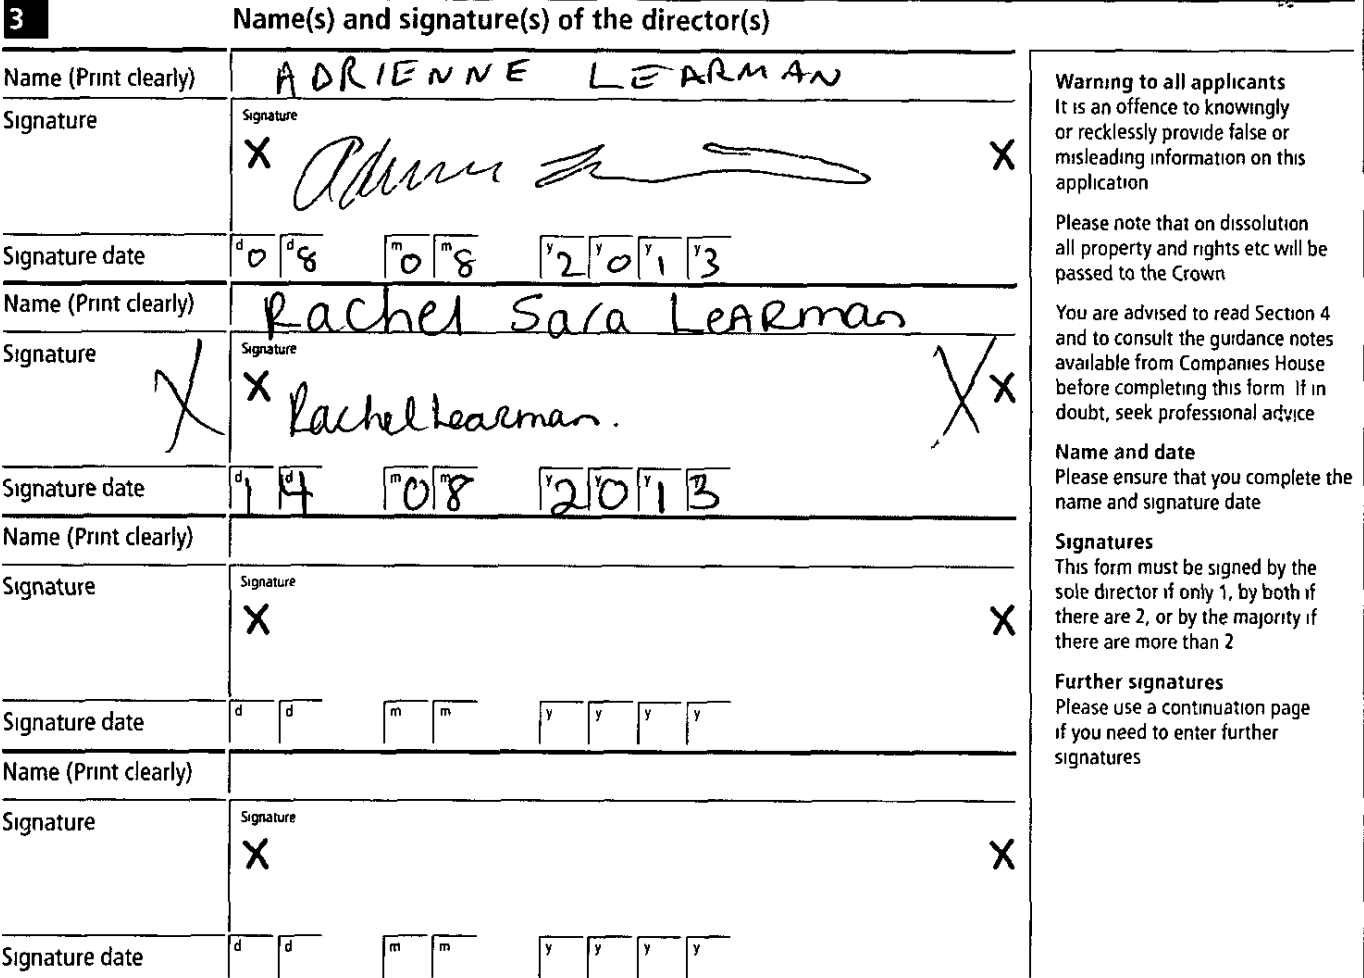 3 Name(s) and signature(s) of the director(s)
Name (Print clearly) ADRIENNE LEARMAN
Signature Signature
X X
Signature date d0 d8 m0 m8 y2 y0 y1 y3
Name (Print clearly) Rachel Sara LeARman
Signature Signature
X X Rachel Learman. X X
Signature date d1 d4 m0 m8 y2 y0 y1 y3
Name (Print clearly)
Signature Signature
X X
Signature date d d m m y y y y
Name (Print clearly)
Signature Signature
X X
Signature date d d m m y y y y
Warning to all applicants
It is an offence to knowingly
or recklessly provide false or
misleading information on this
application
Please note that on dissolution
all property and rights etc will be
passed to the Crown
You are advised to read Section 4
and to consult the guidance notes
available from Companies House
before completing this form If in
doubt, seek professional advice
Name and date
Please ensure that you complete the
name and signature date
Signatures
This form must be signed by the
sole director if only 1, by both if
there are 2, or by the majority if
there are more than 2
Further signatures
Please use a continuation page
if you need to enter further
signatures